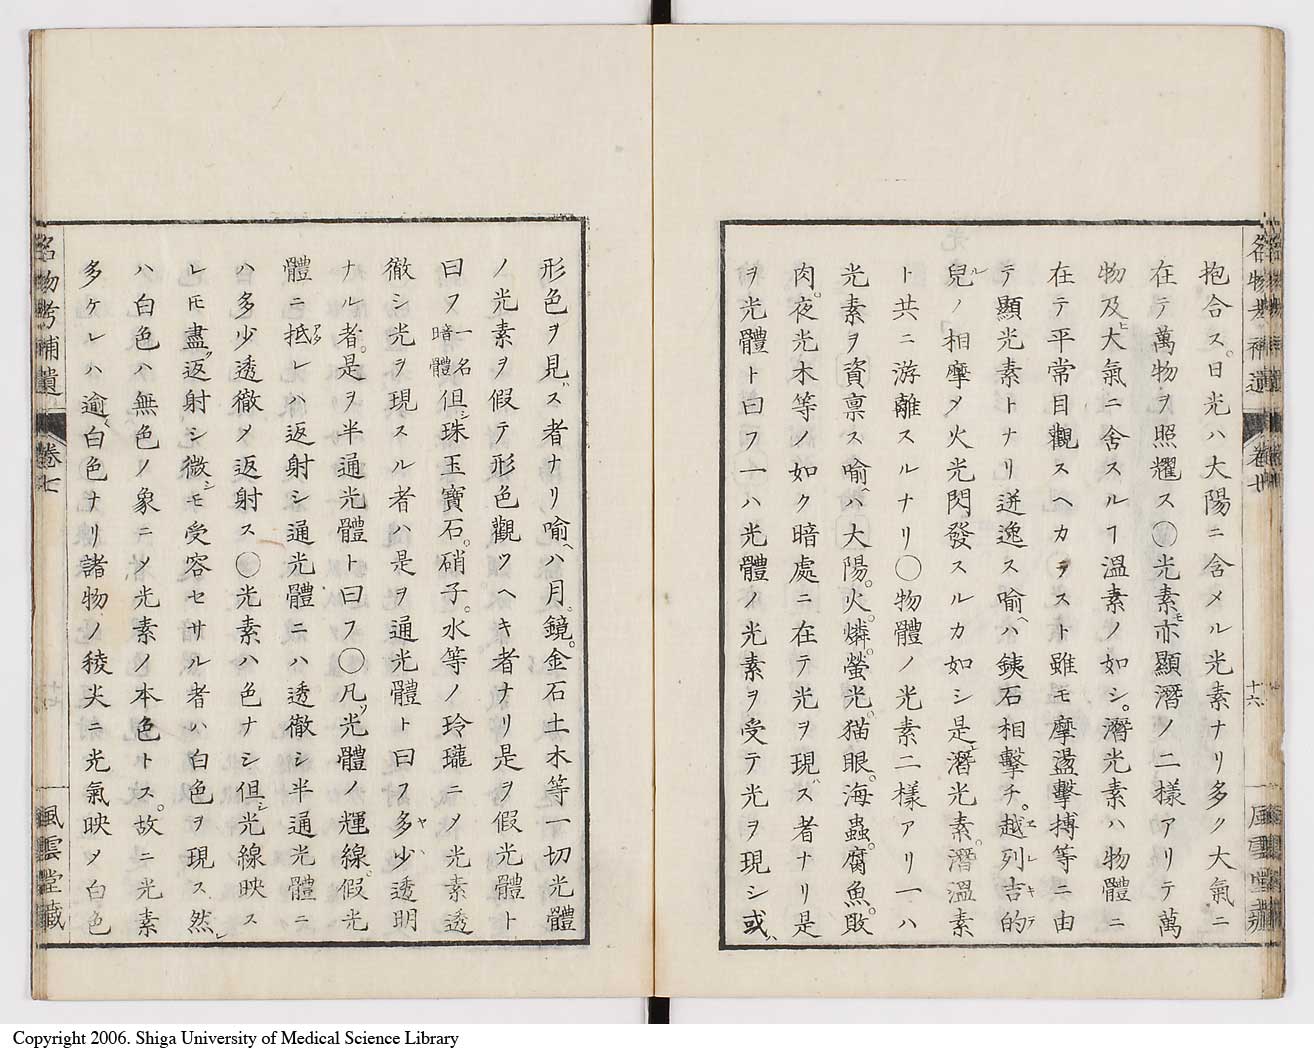 抱合ス。日光ハ大陽ニ含メル光素ナリ多ク大氣ニ
在テ萬物ヲ照耀ス◯光素モ亦顯潛ノ二樣アリテ萬
物及ヒ大氣ニ舍スルヿ溫素ノ如シ。潛光素ハ物體ニ
在テ平常目觀スヘカラスト雖モ摩盪擊搏等ニ由
テ顯光素トナリ迸逸ス喻ヘハ銕石相擊チ。越列吉的
兒ノ相摩メ火光閃發スルカ如シ是レ潛光素。潛溫素
ト共ニ游離スルナリ◯物體ノ光素二樣アリ一ハ
光素ヲ資禀ス喻ヘハ大陽。火。燐。螢光。猫眼。海蟲。腐魚。敗
肉。夜光木等ノ如ク暗處ニ在テ光ヲ現ハス者ナリ是
ヲ光體ト曰フ一ハ光體ノ光素ヲ受テ光ヲ現シ或ハ
形色ヲ見ハス者ナリ喻ヘハ月。鏡。金石土木等一切光體
ノ光素ヲ假テ形色觀ツヘキ者ナリ是ヲ假光體ト
曰フ一名暗體但シ珠玉寶石。硝子。水等ノ玲瓏ニメ光素透
徹シ光ヲ現スル者ハ是ヲ通光體ト曰フ多少ハヤ透明
ナル者。是ヲ半通光體ト曰フ◯凡ソ光體ノ輝線。假光
體ニ抵レハ返射シ通光體ニハ透徹シ半通光體ニ
ハ多少透徹メ返射ス◯光素ハ色ナシ但シ光線映ス
レモ盡ク返射シ微シモ受容セサル者ハ白色ヲ現ス然レ
ハ白色ハ無色ノ象ニメ光素ノ本色トス。故ニ光素
多ケレハ逾白色ナリ諸物ノ稜尖ニ光氣映メ白色
名物考補遺
卷七
十六
風雲堂藏
名物考補遺
卷七
風雲堂藏
Copyright 2006. Shiga University of Medical Science Library